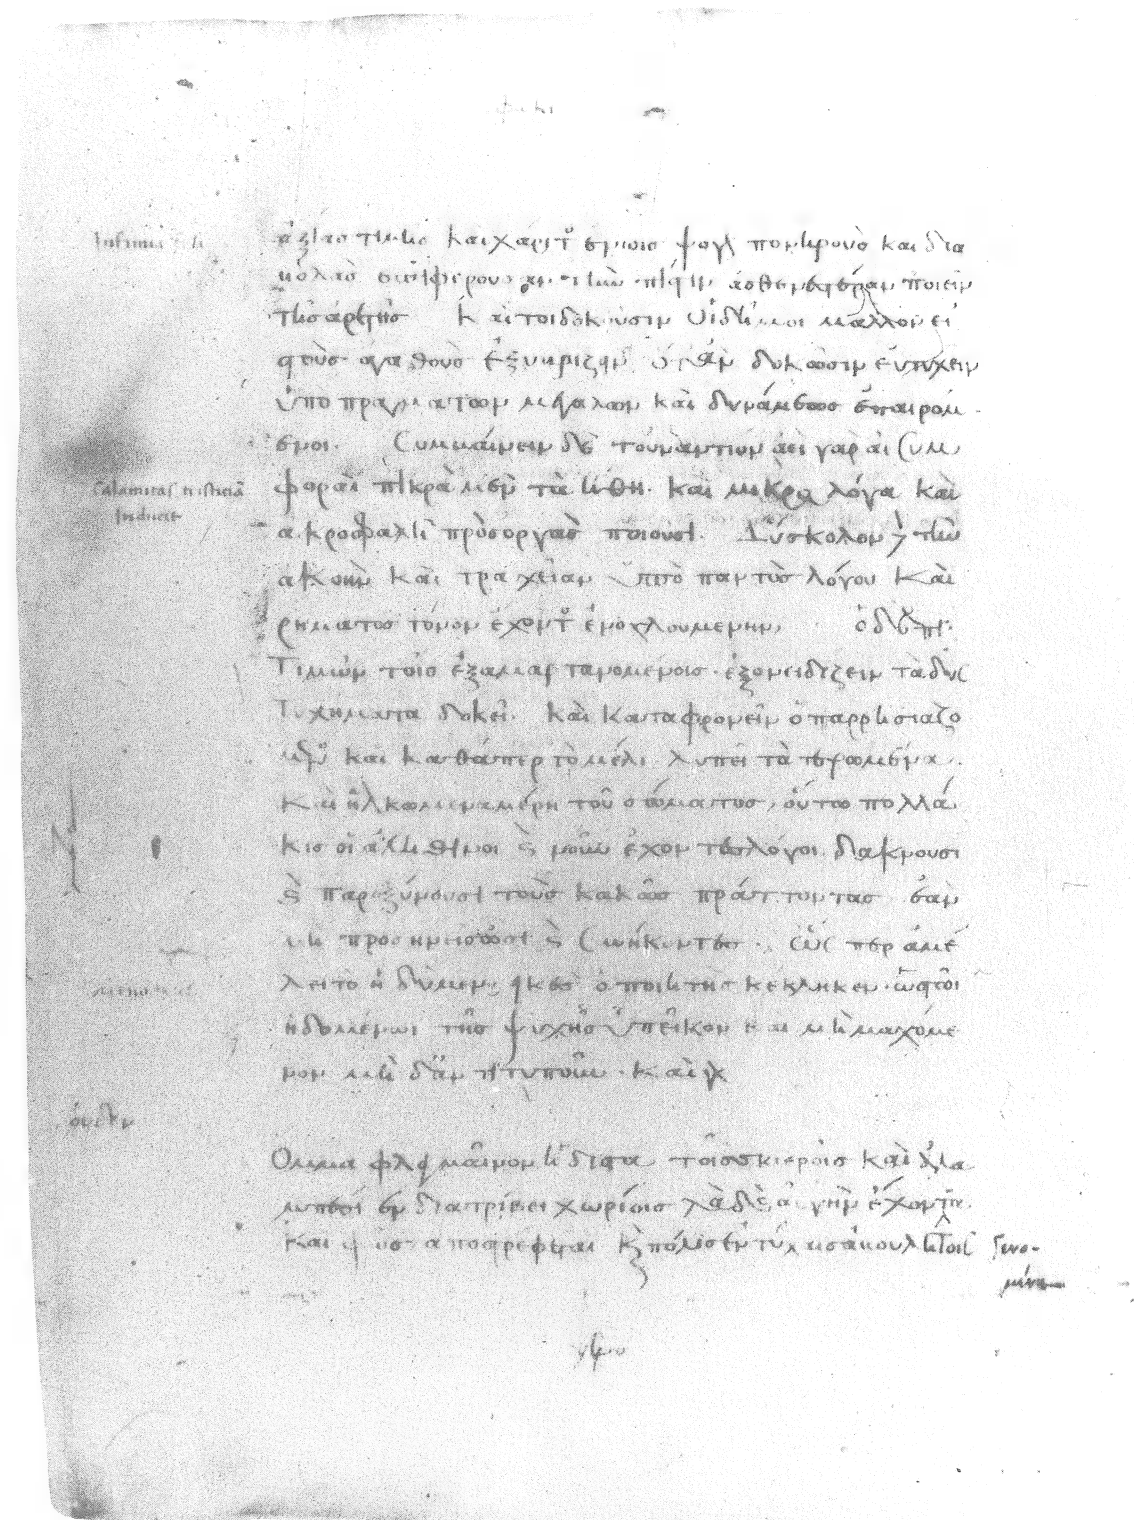 ἀξίας τιμῆς καὶ χάριτ ἐνίοις ψογ πονηροὺς καὶ δια
βολὰς ἐπιφέρουσαν τὴν πίστιν ἀσθενεστέραν ποιεῖν
τῆς ἀρετῆς Καίτοι δοκοῦσιν οἱ δῆμοι μᾶλλον εἰ
στοὺς ἀγαθοὺς ἐξυβρίζειν ὅταν δοκῶσιν εὐτυχεῖν
ὑπὸ πραγμάτων μεγάλων καὶ δυνάμεως ἐπαιρομ
ενοι. Συμβαίνειν δὲ τοὐναντίον ἀεὶ γὰρ αἱ Συμ
φοραὶ πικρὰ μὲν τὰ ἤθη. καὶ μικρολόγα καὶ
ακροσφαλῆ πρὸς οργὰς ποιουσι. Δύσκολον δὲ τὴν
ακοὴν καὶ τραχεῖαν ὑπὸ παντὸς λόγου καὶ
ρήματος τόνον ἔχοντ ἐνοχλουμένην ὁ δ' ἐπι
Τιμῶν τοῖς ἐξαμαρτανομένοις. ἐξονειδίζειν τὰ δυς
Τυχήματα δοκεῖ. καὶ καταφρονεῖν ὁ παρρησιαζο
μεν καὶ καθάπερ τὸ μέλι λυπεῖ τὰ τετρωμένα.
καὶ ἡλκωμενα μέρη τοῦ σώματος, οὕτω πολλά
κις οἱ ἀληθινοὶ ϗ νοῦν ἔχοντες λόγοι δακνουσι
ϗ παροξύνουσι τοὺς κακῶς πράττοντας ἐὰν
μὴ προσηνεῖς ὦσι ϗ Συνήκοντες. ὥς περ ἀμέ
λει τὸ ἡδύ μενοεικὲς ὁ ποιητὴς κέκληκεν. ὡς τῶι
ἡδομένωι τῆς ψυχῆς ὑπεῖκον καὶ μὴ μαχόμε
νον μὴ δ' ἀντιτυποῦν. καὶ γὰ
Ομμα φλεγμαῖνον ἥδιστα τοῖς σκιεροῖς καὶ ἀλα
μπέσι ἐν διατρίβει χωρίοις τὰ δὲ αυγὴν ἔχοντα
καὶ φῶς αποστρέφεται ϗ πόλις ἐν τύχαις ἀβουλήτοις γενο-
μένη
Calamitas tristitiā
Inducit